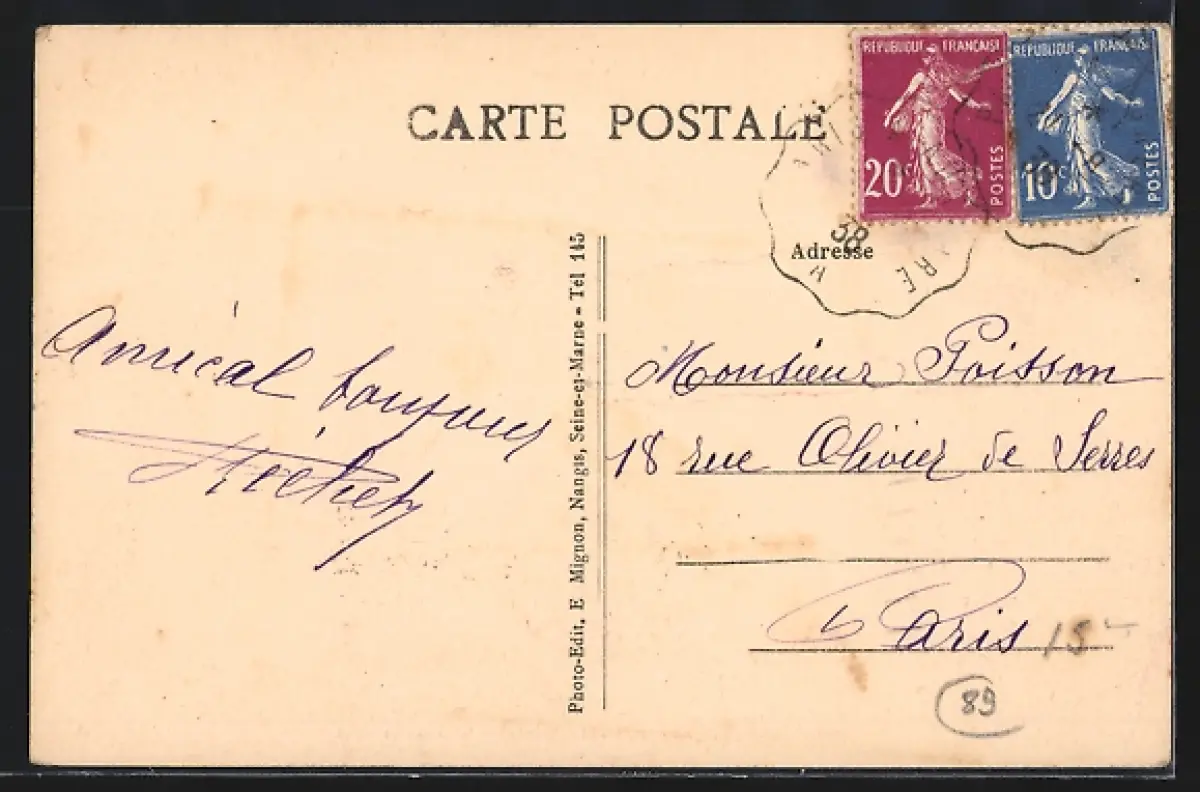 CARTE POSTALE
REPUBLIQUE FRANÇAISE
20c
POSTES
REPUBLIQUE FRANÇAISE
10c
POSTES
38
Adresse
Photo-Edit. E Mignon, Nangis, Seine-et-Marne - Tél 145
Amical
Monsieur Poisson
18 rue Olivier de Serres
Paris 15
89